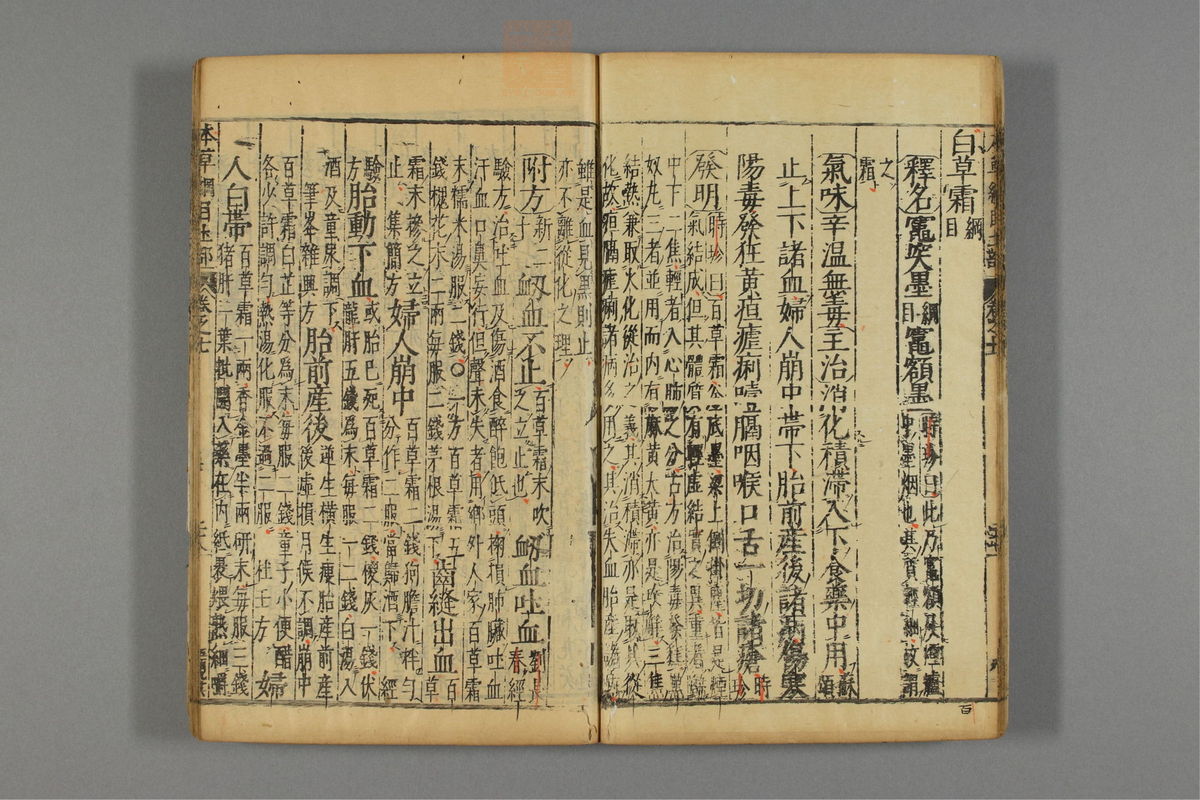 百草霜綱目
釋名竈突墨綱目竈額墨時珍曰此乃竈額及烟爐中墨烟也其質輕細故謂
之霜
氣味辛溫無毒主治消化積滯入下食藥中用蘇頌
止上下諸血婦人崩中帶下胎前産後諸病傷寒
陽毒發狂黃疸瘧痢噎膈咽喉口舌一切諸瘡時珍
發明時珍曰百草霜釜底墨梁上倒掛塵皆是煙氣結成但其體質有輕虛結實之異重者歸
中下二焦輕者入心肺之分古方治陽毒發狂黑奴丸三者並用而內有麻黃大黃亦是攻解三焦
結熱兼取火化從治之義其消積滯亦是取其從化故疸膈瘧痢諸病多用之其治失血胎産諸病
雖是血見黑則止亦不離從化之理
附方新二十衂血不止百草霜末吹之立止也衂血吐血劉長春經
驗方治吐血及傷酒食醉飽低頭掬損肺臟吐血汗血口鼻妄行但聲未失者用鄉外人家百草霜
末糯米湯服二錢○一方百草霜五錢槐花末二兩每服二錢茅根湯下齒縫出血百草
霜末摻之立止集簡方婦人崩中百草霜二錢狗膽汁拌勻分作二服當歸酒下經
驗方胎動下血或胎已死百草霜二錢㯶灰一錢伏龍肝五錢爲末每服一二錢白湯入
酒及童尿調下筆峯雜興方胎前産後逆生橫生瘦胎産前産後虛損月候不調崩中
百草霜白芷等分爲末每服二錢童子小便醋各少許調勻熱湯化服不過二服杜壬方婦
人白帶百草霜一兩香金墨半兩研末每服三錢猪肝一葉批開入藥在內紙裹煨熟細嚼
本草綱目土部
卷之七